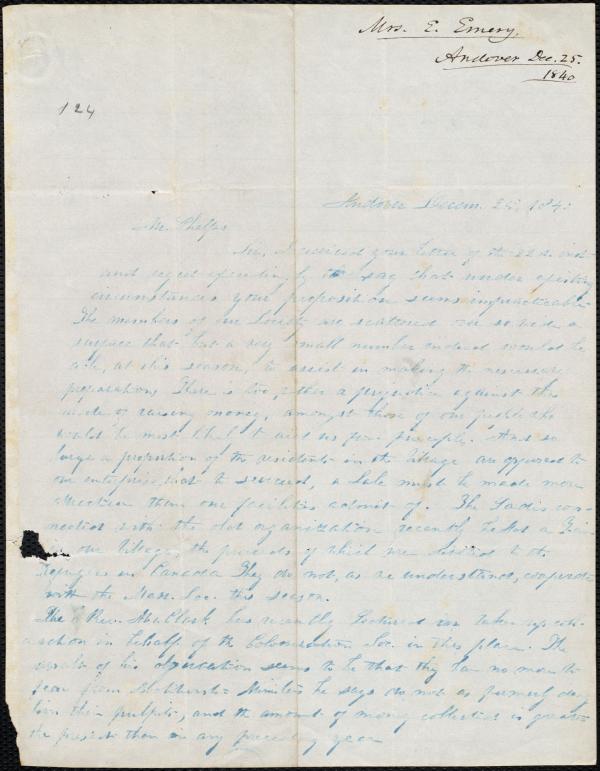 Mrs. E. Emery,
Andover Dec. 25.
1840
124
Andover Decem. 25, 184
Mr. Phelps
Sir, I received your letter of the 22d. inst
and regret exceedingly to say that under existing
circumstances your proposition seems impracticable
The members of our Society are scattered over so wide a
surface that but a very small number indeed would be
able, at this season, to assist in making the necessary
preparations There is too, rather a prejudice against this
mode of raising money, amongst those of our people who
would be most likely to aid us from principle. And so
large a proportion of the residents in the Village are opposed to
our enterprise, that to succeed, a Sale must be made more
attractive than our facilities admit of. The Ladies con-
nected with the old organization recently held a Fair
in our Village, the proceeds of which were devoted to the
Refugees in Canada They do not, as we understand, cooperate
with the Mass. Soc. this season.
The Rev. Mr. Clark has recently lectured and taken up coll-
ection in behalf of the Colonization Soc. in this place. The
result of his observation seems to be that they have no more to
fear from Abolitionists Ministers he says do not as formerly
their pulpits, and the amount of money collected is greater
the present than in any preceding year